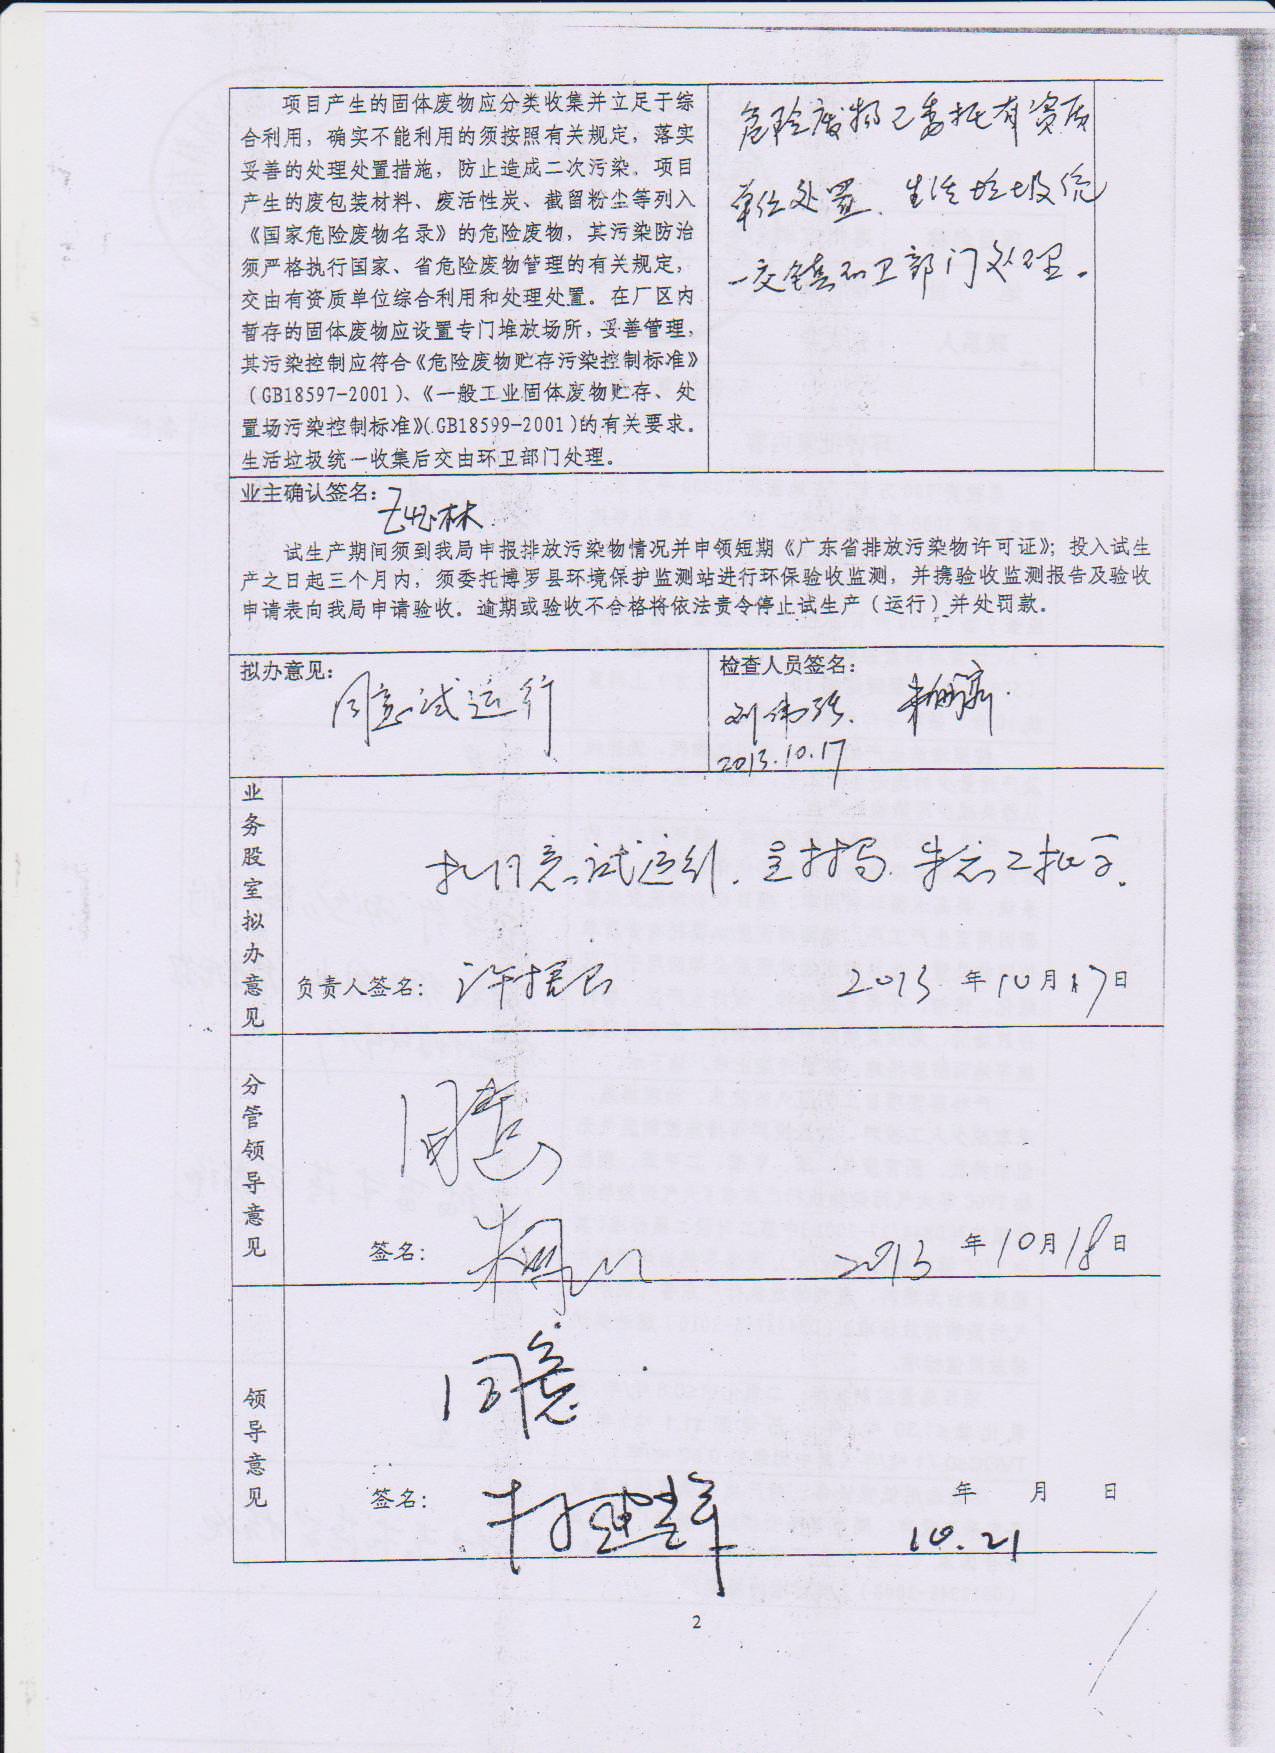 项目产生的固体废物应分类收集并立足于综
合利用，确实不能利用的须按照有关规定，落实
妥善的处理处置措施，防止造成二次污染。项目
产生的废包装材料、废活性炭、截留粉尘等列入
《国家危险废物名录》的危险废物，其污染防治
须严格执行国家、省危险废物管理的有关规定，
交由有资质单位综合利用和处理处置。在厂区内
暂存的固体废物应设置专门堆放场所，妥善管理，
其污染控制应符合《危险废物贮存污染控制标准》
（GB18597-2001）、《一般工业固体废物贮存、处
置场污染控制标准》（GB18599-2001）的有关要求。
生活垃圾统一收集后交由环卫部门处理。
危险废物已委托有资质
单位处置、生活垃圾统
一交镇环卫部门处理。
业主确认签名：
试生产期间须到我局申报排放污染物情况并申领短期《广东省排放污染物许可证》；投入试生
产之日起三个月内，须委托博罗县环境保护监测站进行环保验收监测，并携验收监测报告及验收
申请表向我局申请验收。逾期或验收不合格将依法责令停止试生产（运行）并处罚款。
拟办意见：
同意试运行
检查人员签名：
刘伟强
2013.10.17
业务股室拟办意见
拟同意试运行
负责人签名：
2013年10月17日
分管领导意见
同意
签名：
2013年10月18日
领导意见
同意
签名：
年 月 日
10.21
2